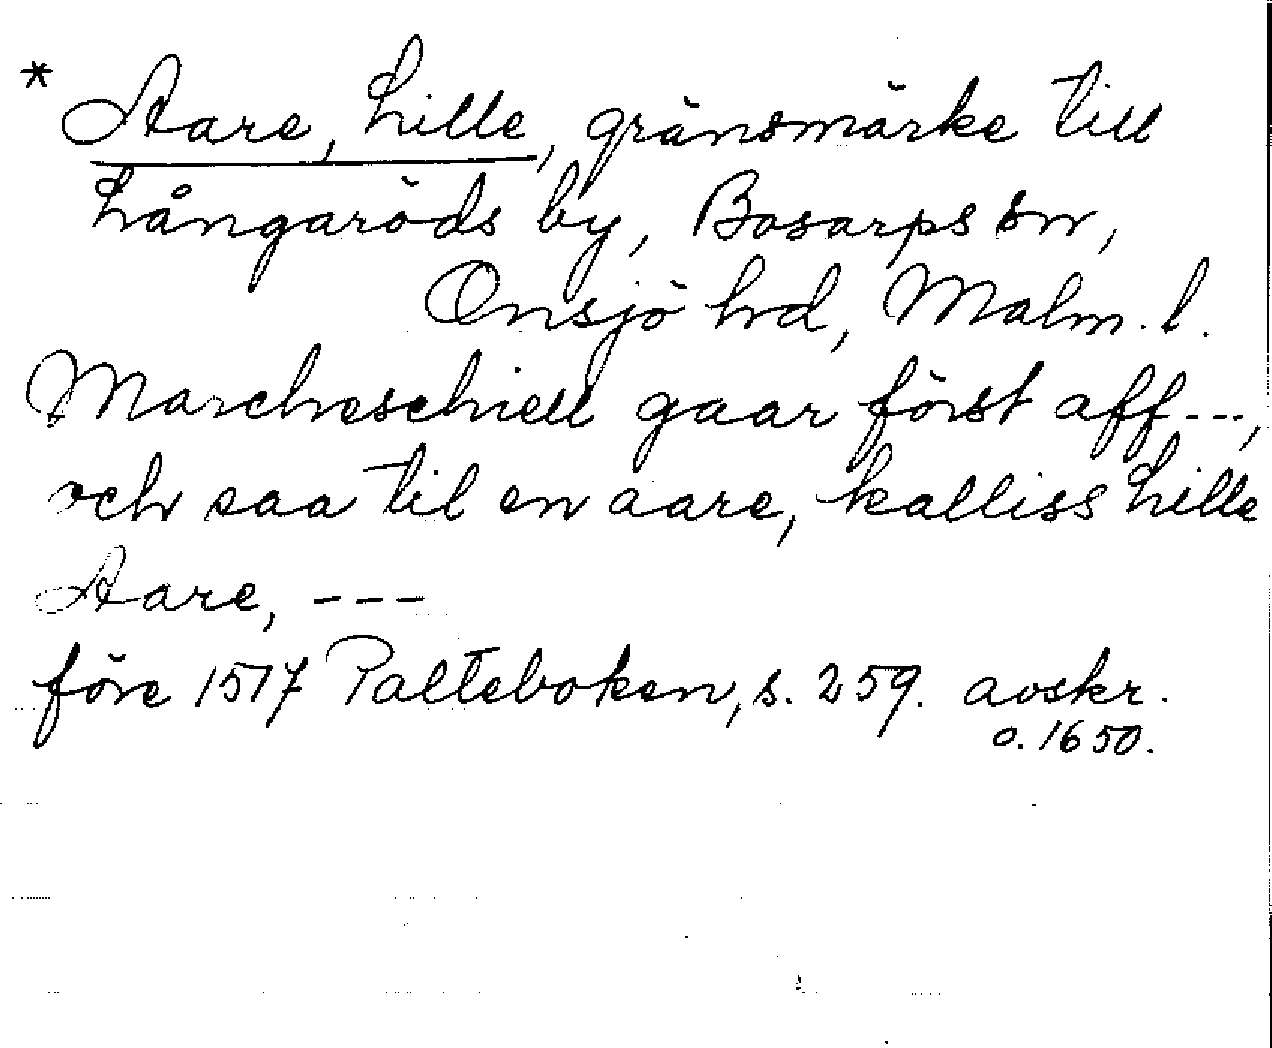 * Aare, Lille, gränsmärke till
Långaröds by, Bosarps sn,
Onsjö hd, Malm. l.
Marcheschiell gaar först aff ---,
och saa til en aare, kalliss Lille
Aare, ---
före 1517 Palteboken, s. 259. avskr.
o. 1650.